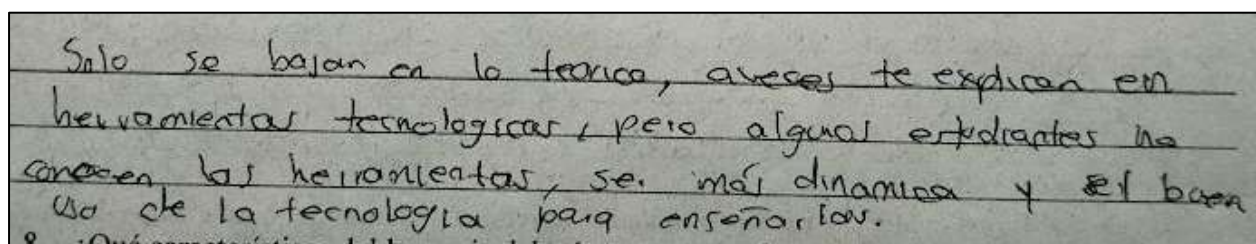 Solo se basan en lo teorico, aveces te explican en
herramientas tecnologicas, pero algunas estudiantes no
conocen las herramientas, se. más dinamica y el buen
uso de la tecnologia para enseñarlos.